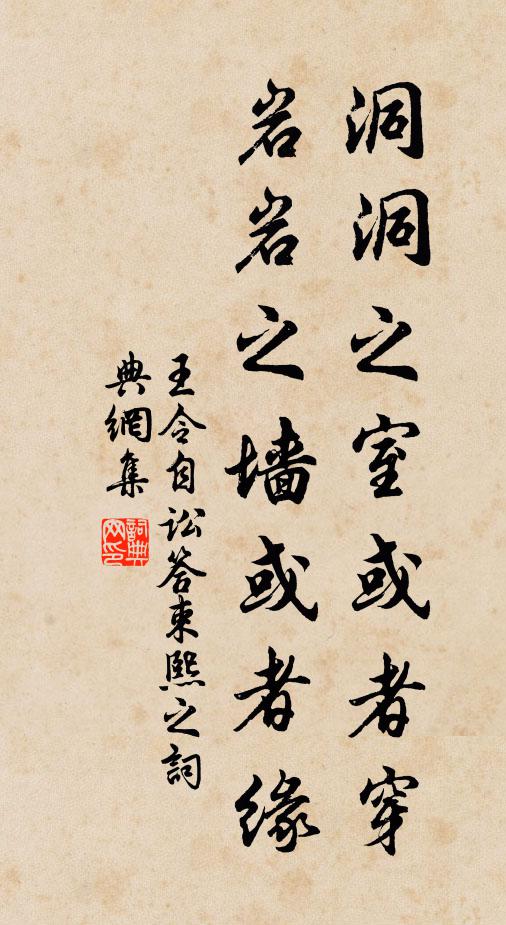 洞洞之室或者穿
岩岩之墙或者缘
王令自讼答束熙之詞
典網集
詞典網印